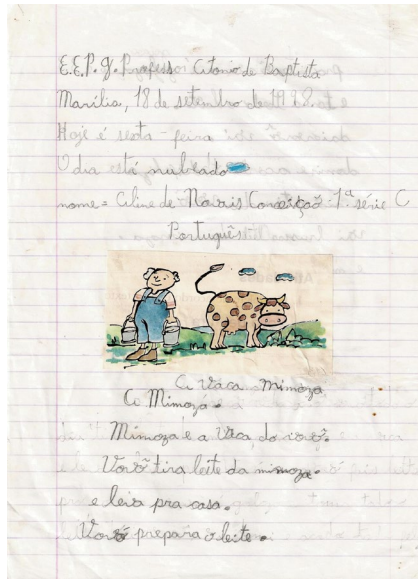 E.E.P.G. Professor Antonio de Baptista
Marília, 18 de setembro de 1998.
Hoje é sexta-feira
O dia está nublado
nome = Celine de Morris Conceição - 1ª série C
Português
A Vaca Mimoza
A Mimoza.
Mimoza é a Vaca do vovô.
Vovô tira leite da mimoza.
e leva pra casa.
Vovó prepara o leite.